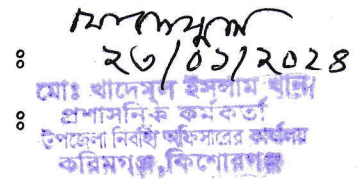 ঃ ২৩/০১/২০২৪
মোঃ খাদেমুল ইসলাম খান
ঃ প্রশাসনিক কর্মকর্তা
উপজেলা নির্বাহী অফিসারের কার্যালয়
করিমগঞ্জ,কিশোরগঞ্জ